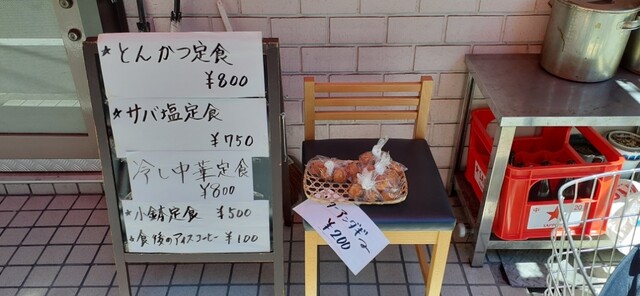 ★とんかつ定食
¥800
★サバ塩定食
¥750
冷し中華定食
¥800
★小鉢定食 ¥500
★食後のアイスコーヒー ¥100
アンダギー
¥200